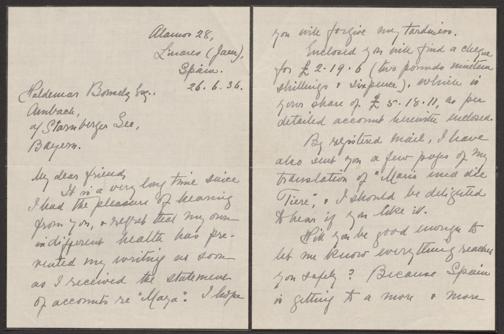 Alamos 28,
Linares (Jaen),
Spain.
26.6.36.
Waldemar Bonsels Esq.,
Ambach,
a/Starnberger See,
Bayern.
My dear friend,
It is a very long time since
I had the pleasure of hearing
from you, & regret that my own
indifferent health has pre-
vented my writing as soon
as I received the statement
of accounts re "Maya". I hope
you will forgive my tardiness.
Enclosed you will find a cheque
for £2-19.6 (two pounds nineteen
shillings & sixpence), which is
your share of £5-18-11, as per
detailed account herewith enclosed.
By registered mail, I have
also sent you a few pages of my
translation of "Mario und die
Tiere", & I should be delighted
to hear if you like it.
Will you be good enough to
let me know everything reaches
you safely? Because Spain
is getting to a more & more